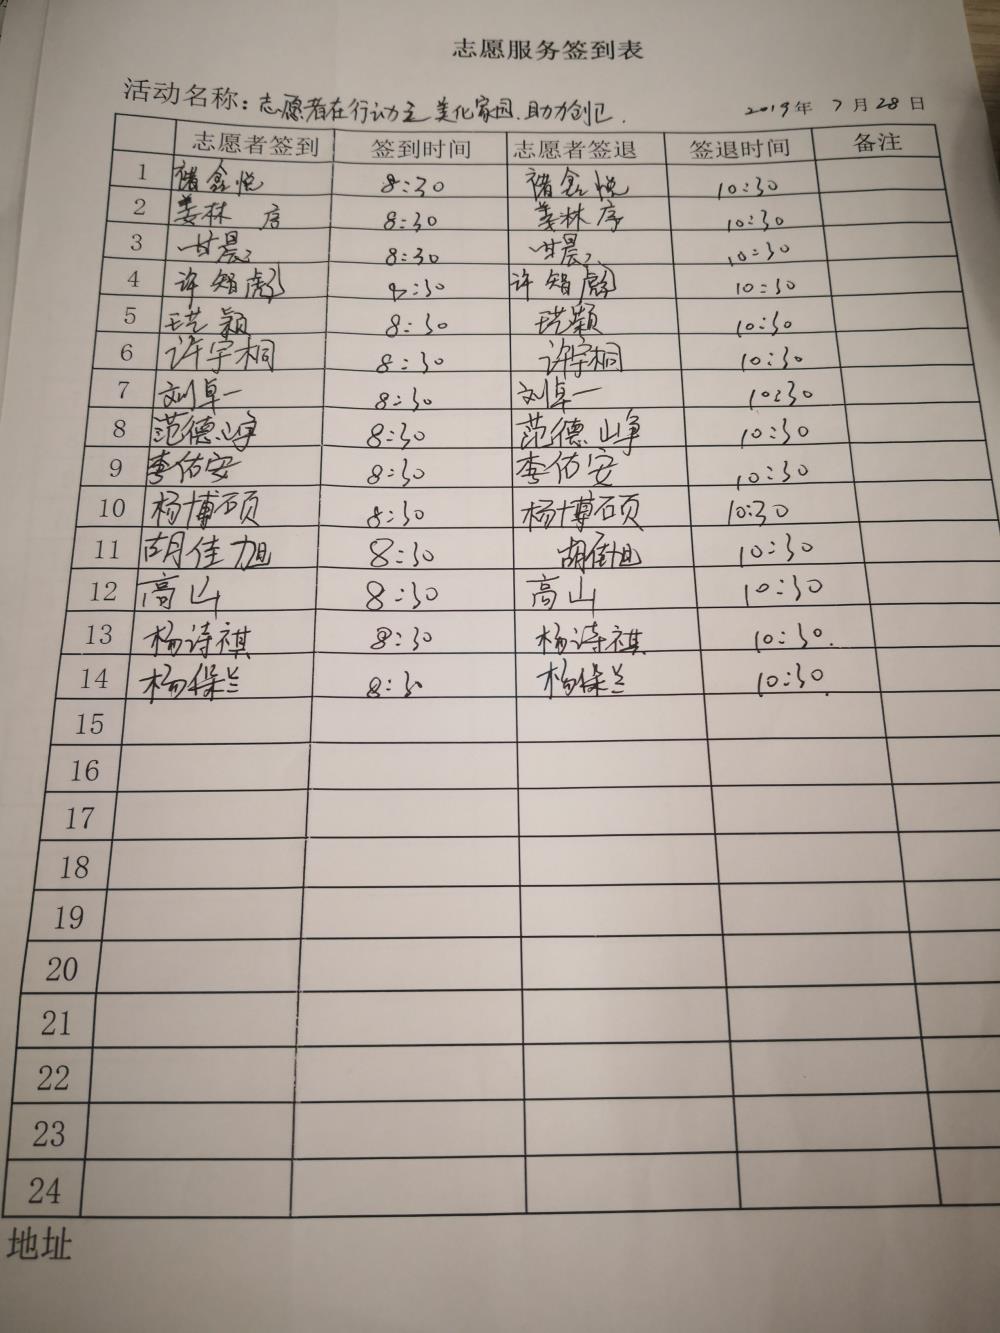 志愿服务签到表
活动名称：志愿者在行动之美化家园.助力创卫. 2019年 7月28日
志愿者签到 签到时间 志愿者签退 签退时间 备注
1 褚鑫悦 8:30 褚鑫悦 10:30
2 姜林序 8:30 姜林序 10:30
3 甘晨 8:30 甘晨 10:30
4 许智彪 8:30 许智彪 10:30
5 颖 8:30 颖 10:30
6 许宇桐 8:30 许宇桐 10:30
7 刘卓一 8:30 刘卓一 10:30
8 范德峥 8:30 范德峥 10:30
9 李佑安 8:30 李佑安 10:30
10 杨博硕 8:30 杨博硕 10:30
11 胡佳旭 8:30 胡佳旭 10:30
12 高山 8:30 高山 10:30
13 杨诗祺 8:30 杨诗祺 10:30.
14 杨保兰 8:30 杨保兰 10:30.
15
16
17
18
19
20
21
22
23
24
地址